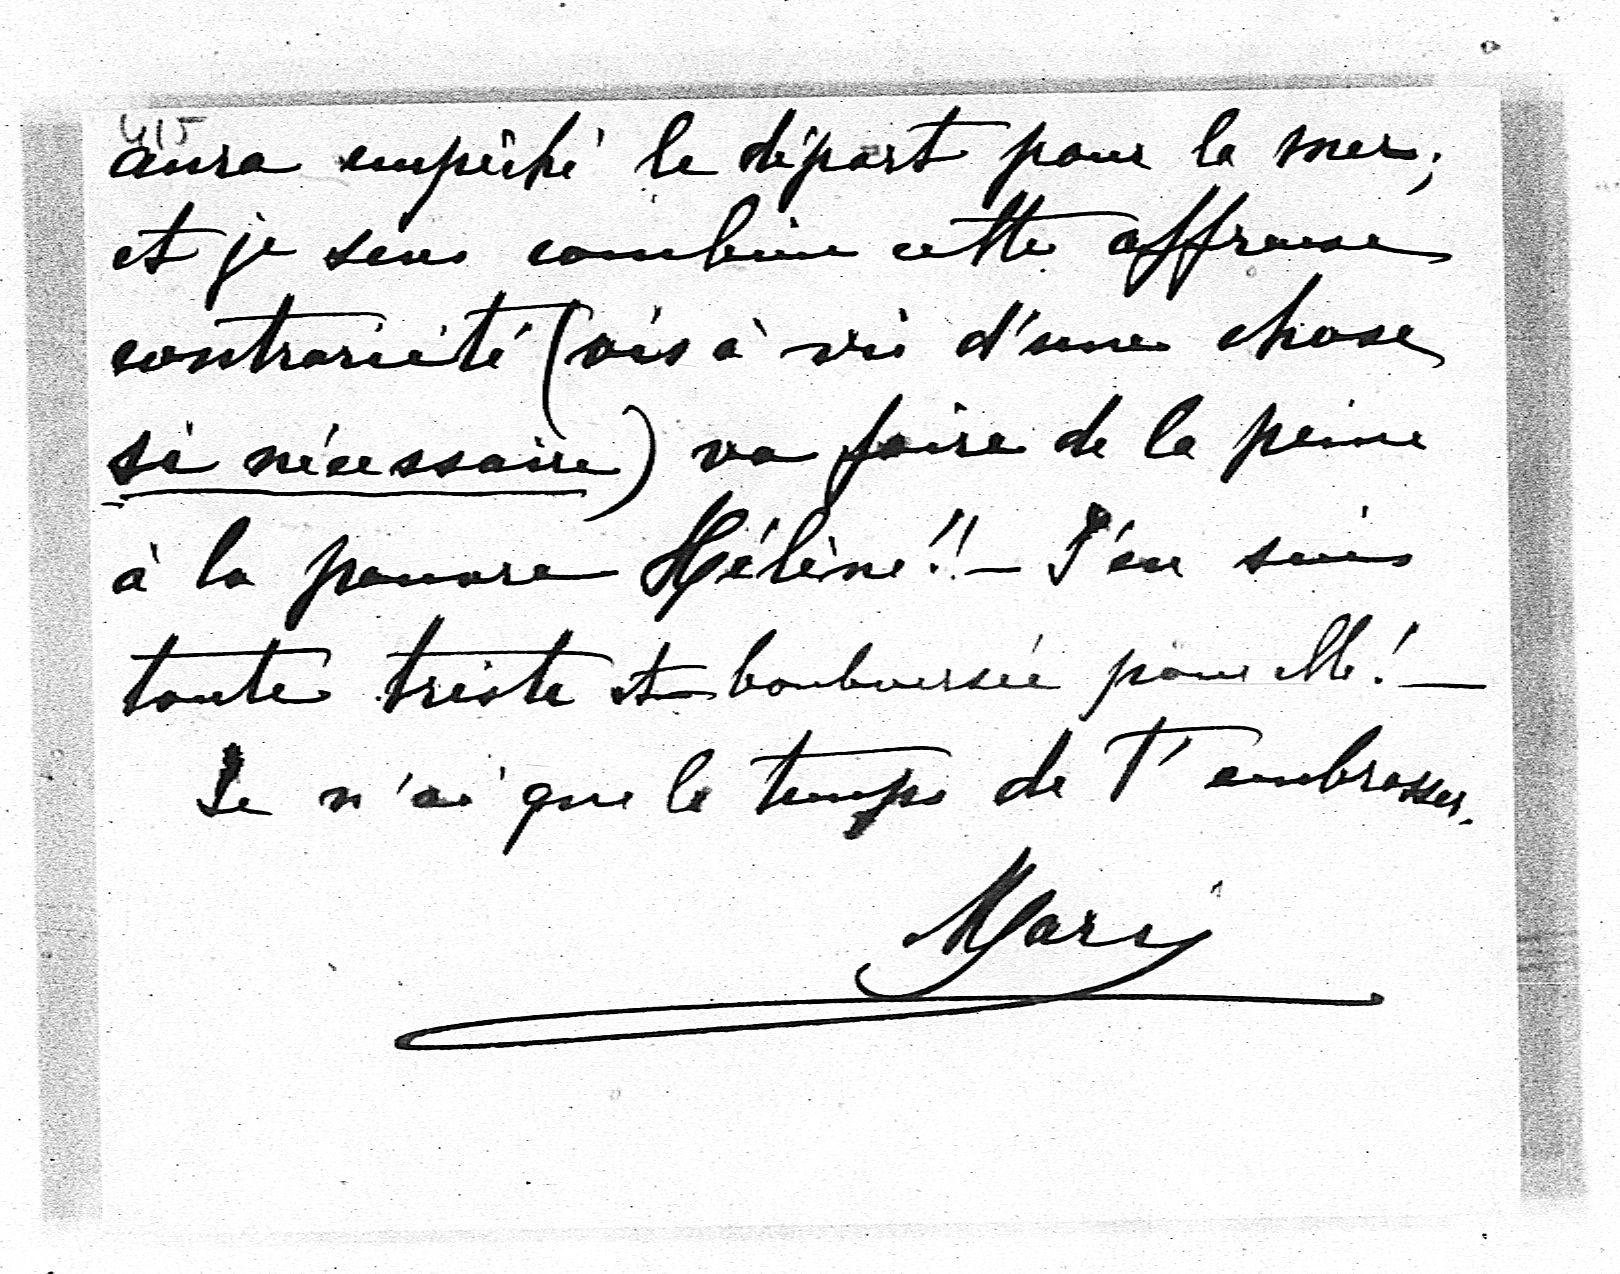 415
aura empêché le départ pour la mer;
et je sens combien cette affreuse
contrariété (vis à vis d'une chose
si nécessaire) va faire de la peine
à la pauvre Hélène!! — J'en suis
toute triste et bouleversée pour elle! —
Je n'ai que le temps de t'embrasser.
Marie